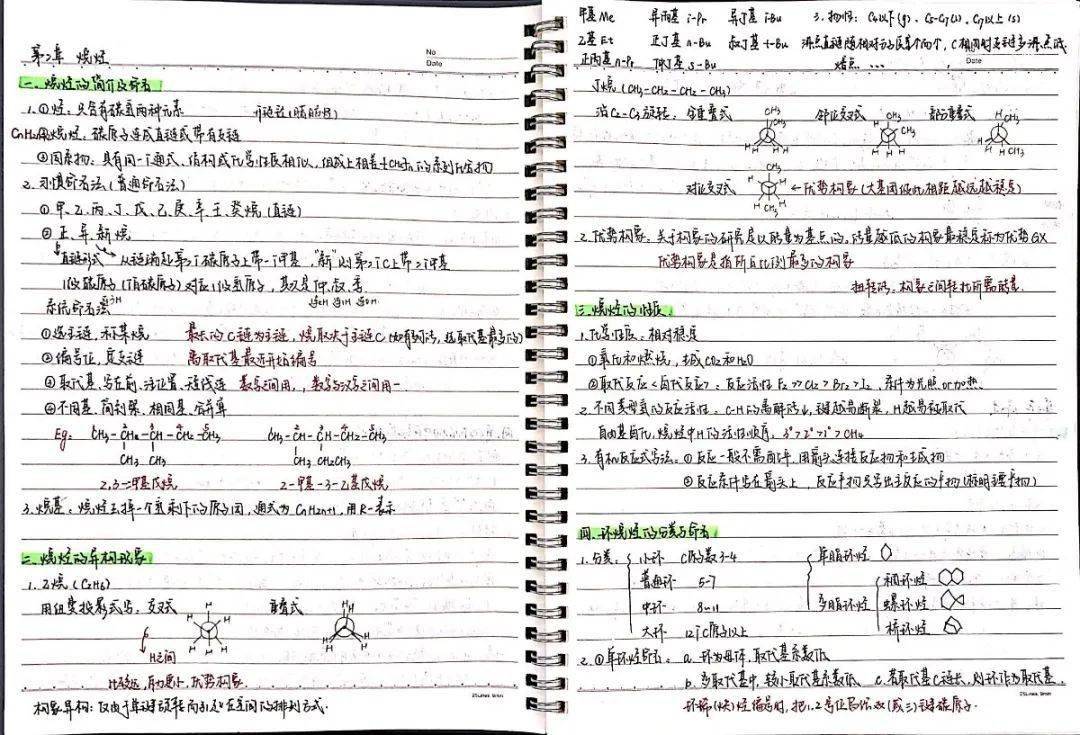 第二章 烷烃
No
Date
一.烷烃的简介及命名
1.①烃:只含有碳氢两种元素
CnH2n+2 ②烷烃:碳原子连成直链或带有支链
③同系物:具有同一个通式,结构或化学性质相似,组成上相差的系列化合物
2.习惯命名法(普通命名法)
①甲、乙、丙、丁、戊、己、庚、辛、壬、癸烷(直链)
②正、异、新烷
直链形式 从链端起第2个碳原子上带一个甲基 "新"则第2个C上带2个甲基
系统命名法
①选主链,称某烷 最长的C链为主链,烷取决于主链C
②编号位,定支链 离取代基最近开始编号
③取代基,写在前,注位置,短线连 数字之间用, 数字与汉字之间用-
④不同基,简到繁,相同基,合并算
Eg: CH3-CH2-CH-CH-CH3 CH3-CH-CH-CH2-CH3
CH3 CH3 CH3 CH2CH3
2,3-二甲基戊烷 2-甲基-3-乙基戊烷
3.烷基:烷烃去掉一个氢剩下的原子团,通式为CnH2n+1,用R-表示
二.烷烃的异构现象
1.乙烷(C2H6)
用纽曼投影式写:交叉式 重叠式
H之间
比较远,斥力更小,优势构象
构象异构:仅由于单键旋转而引起在空间的排列方式.
甲基 Me 异丙基 i-Pr 异丁基 i-Bu 3.物性: C4以下(g)、C5-C17(l)、C17以上(s)
乙基 Et 正丁基 n-Bu 叔丁基 t-Bu
正丙基 n-Pr 仲丁基 s-Bu 熔点…
Date
丁烷(CH3-CH2-CH2-CH3)
沿C2-C3旋转,全重叠式 邻位交叉式 部分重叠式
对位交叉式 ←优势构象(大基团彼此相距越远越稳定)
2.优势构象:关于构象的研究是以能量为基点的,能量越低的构象最稳定称为优势GX
优势构象是指所占比例最多的构象
扭转能:构象之间转化所需能量.
三.烷烃的性质
1.化学性质:相对稳定
①氧化和燃烧,生成CO2和H2O
②取代反应<卤代反应>:反应活性 F2>>Cl2>Br2>I2,条件为光照or加热.
2.不同类型氢的反应活性:C-H的离解能↓,键越易断裂,H越易被取代
自由基卤代,烷烃中H的活性顺序,3°>2°>1°>CH4
3.有机反应式写法:①反应一般不需配平,用箭头连接反应物和生成物
②反应条件写在箭头上,反应产物只写出主反应的产物(标明主要产物)
四.环烷烃的分类与命名
1.分类: 小环 C原子数3-4 单脂环烃
普通环 5-7 稠环烃
中环 8-11 多脂环烃 螺环烃
大环 12个C原子以上 桥环烃
2.①单环烃命名:a.环为母体,取代基系数低
b.多取代基中,较小取代基系数低 c.若取代基C链长,则环作为取代基.
环烯(炔)烃编号时,把1.2号位留给双(或三)键碳原子.